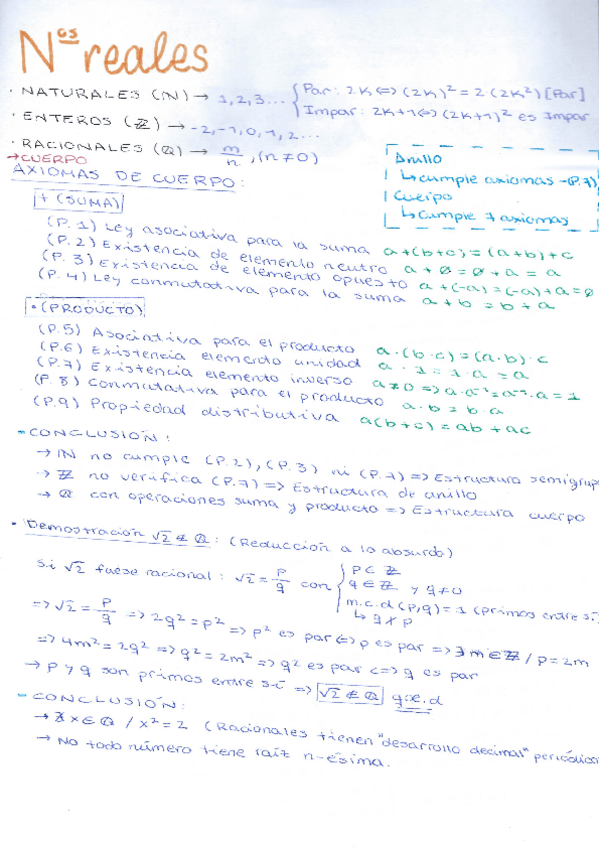 Nºs reales
· NATURALES (ℕ) → 1, 2, 3... { Par: 2K ⇔ (2K)² = 2(2K²) [Par]
Impar: 2K+1 ⇔ (2K+1)² es Impar
· ENTEROS (ℤ) → -2, -1, 0, 1, 2...
· RACIONALES (ℚ) → m/n, (n≠0)
→ CUERPO
Anillo
↳ cumple axiomas -(P.7)
Cuerpo
↳ cumple 7 axiomas
AXIOMAS DE CUERPO:
+ (SUMA)
(P.1) Ley asociativa para la suma a+(b+c) = (a+b)+c
(P.2) Existencia de elemento neutro a+0 = 0+a = a
(P.3) Existencia de elemento opuesto a+(-a) = (-a)+a = 0
(P.4) Ley conmutativa para la suma a+b = b+a
· (PRODUCTO)
(P.5) Asociativa para el producto a·(b·c) = (a·b)·c
(P.6) Existencia elemento unidad a·1 = 1·a = a
(P.7) Existencia elemento inverso a≠0 ⇒ a·a⁻¹ = a⁻¹·a = 1
(P.8) Conmutativa para el producto a·b = b·a
(P.9) Propiedad distributiva a(b+c) = ab + ac
- CONCLUSIÓN:
→ ℕ no cumple (P.2), (P.3) ni (P.7) ⇒ Estructura semigrupo
→ ℤ no verifica (P.7) ⇒ Estructura de anillo
→ ℚ con operaciones suma y producto ⇒ Estructura cuerpo
· Demostración √2 ∉ ℚ: (Reducción a lo absurdo)
Si √2 fuese racional: √2 = p/q con { p ∈ ℤ
q ∈ ℤ y q≠0
m.c.d (p,q) = 1 (primos entre sí)
↳ q ∤ p
⇒ √2 = p/q ⇒ 2q² = p² ⇒ p² es par ⇔ p es par ⇒ ∃ m ∈ ℤ / p = 2m
⇒ 4m² = 2q² ⇒ q² = 2m² ⇒ q² es par ⇔ q es par
→ p y q son primos entre sí ⇒ √2 ∉ ℚ q.e.d
- CONCLUSIÓN:
→ ∄ x ∈ ℚ / x² = 2 (Racionales tienen "desarrollo decimal" periódico
→ No todo número tiene raíz n-ésima.